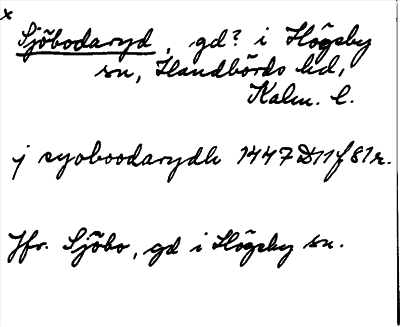 x
Sjöbodaryd, gd? i Högsby
sn, Handbörds hd,
Kalm. l.
j syoboodarydh 1447 D11 f 81r.
Jfr. Sjöbo, gd i Högsby sn.